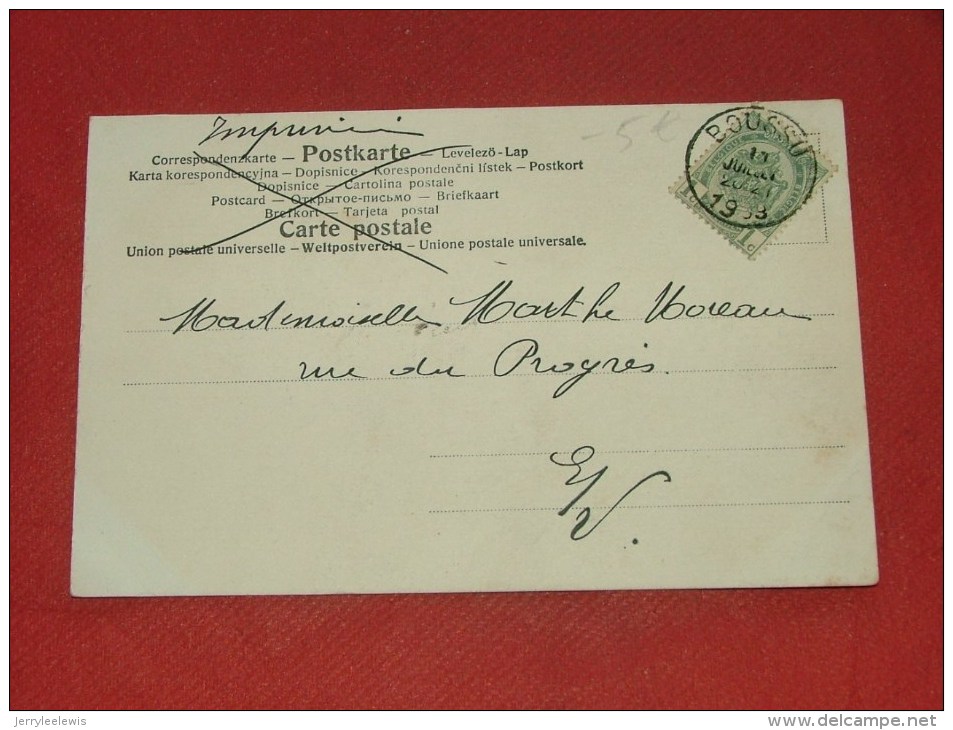 Imprimé
– 5 €
Correspondenzkarte – Postkarte – Levelező-Lap
Karta korespondencyjna – Dopisnice – Korespondenční lístek – Postkort
Dopisnice – Cartolina postale
Postcard – Открытое-письмо – Briefkaart
Brefkort – Tarjeta postal
Carte postale
Union postale universelle – Weltpostverein – Unione postale universale.
BOUSSU
11
JUILLET
1903
Mademoiselle Marthe Moreau
rue du Progrès.
E/V.
jerryleelewis
www.delcampe.net